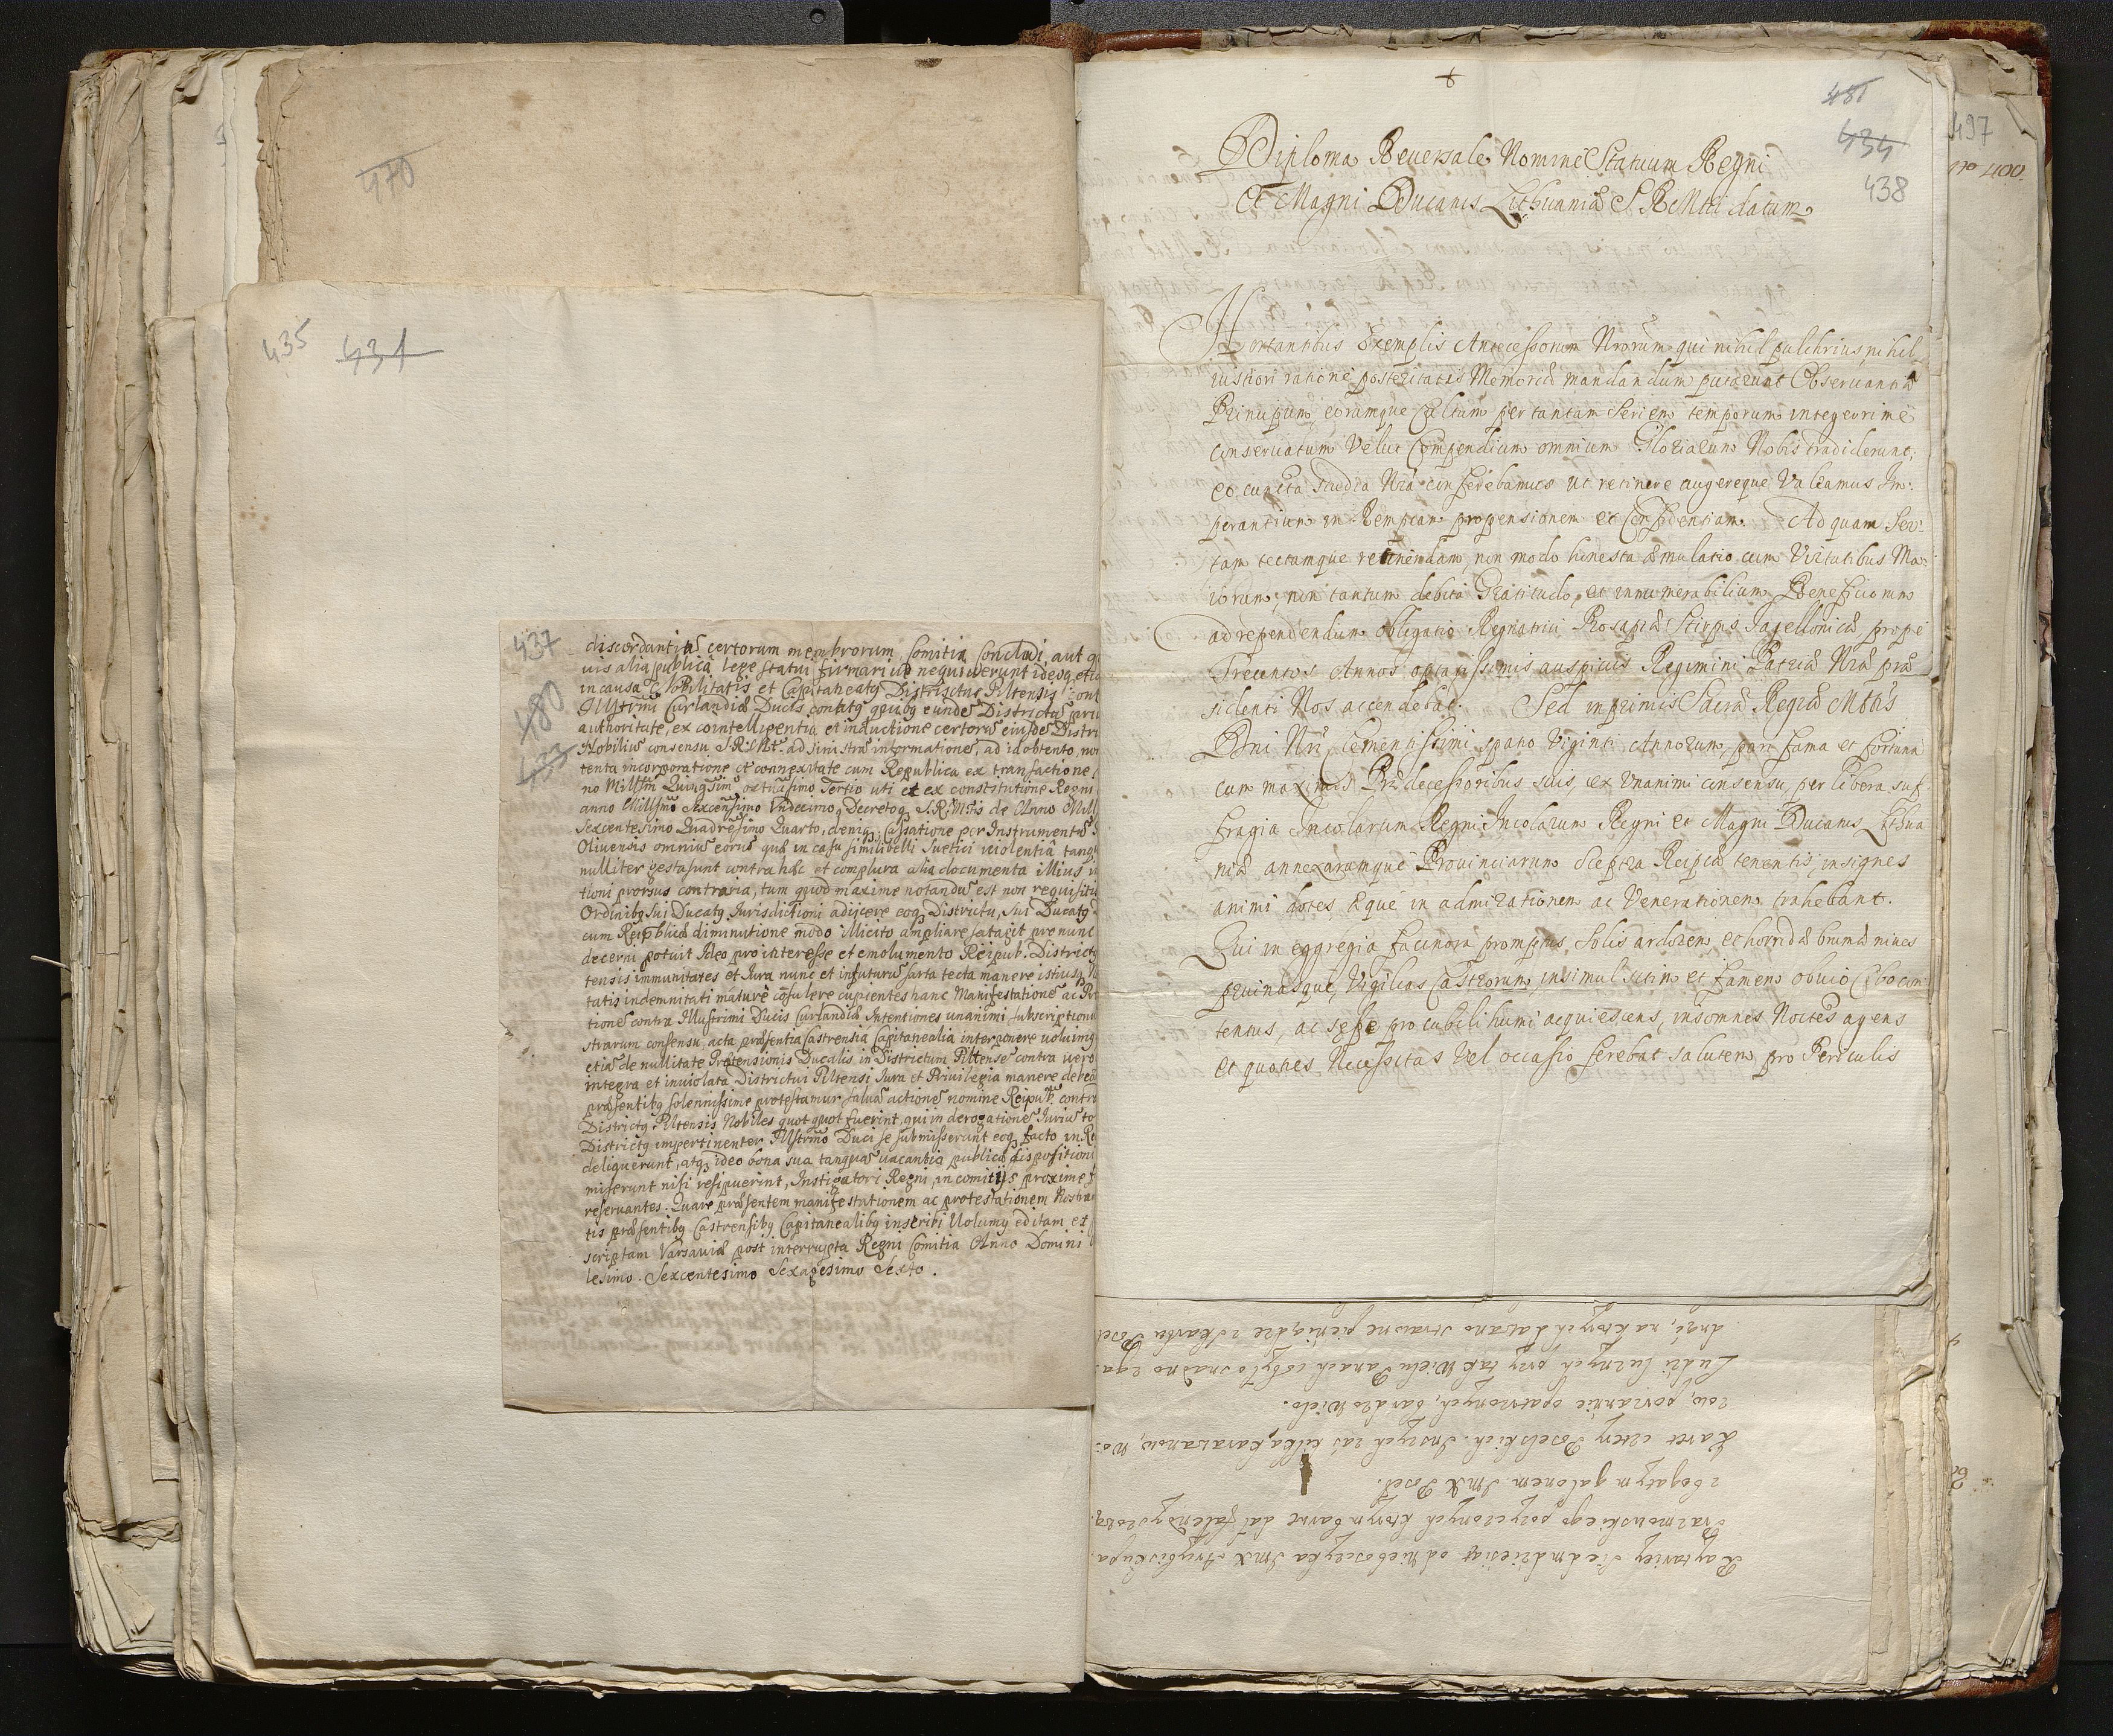 470
435 431
437
480
433
discordantiã certorum membrorum, Comitia Concludi, aut
uis alia publicâ lege statui firmari ue nequiuerunt ideoq̃
in causa Nobilitatis et Capitaneatq Districtus Piltensis
Illustrmi Curlandiæ Ducis conatq eundẽ Districtũ
authoritate, ex cointelligentia et inductione certorũ eiusdẽ Distri
Nobiliũ consensu S.R.Mt. ad sinistrã informationẽ, ad id obtento, no
tenta incorporatione et connexitate cum Republica ex transactione
no Millsm̃ Quingsim̃ octuãsimo Tertio uti et ex constitutione Regni
anno Millsmo Sexcensimo Vndecimo, Decretoq S.R.Mtis de Anno Mill
Sexcentesimo Quadresimo Quarto, deniq; Cassatione per Instrumentũ
Oliuensis omniũ eorũ quæ in casu similibelli Suetici uiolentiâ tanq
nulliter gesta sunt contra hæc et complura alia documenta illius
tioni prorsus contraria, tum quod maxime notandũ est non requisitis
Ordinibq sui Ducatq Iurisdictioni adijcere eoq Districtu, sui Ducatq
cum Reipublicæ diminutione modo illicito ampliare satagit pro nunc
decerni potuit Ideo pro interesse et emolumento Reipub. Districtq
tensis immunitates et Iura nunc et in futurũ sarta tecta manere istiusq
tatis indemnitati mature cõsulere cupientes hanc Manifestationẽ ac Pro
tionẽ contra Illustrimi Ducis Curlandiæ Intentiones unanimi subscriptionũ
strarum consensu, acta præsentia Castrensia Capitanealia interponere uoluimq
etiã de nullitate Prætensionis Ducalis in Districtum Piltensẽ contra uero
integra et inuiolata Districtui Piltensi Iura et Priuilegia manere debeã
præsentibq solennissime protestamur salua actionẽ nomine Reipub. contra
Districtq Piltensis Nobiles quot quot fuerint, qui in derogationẽ Iuriũ to
Districtq impertinenter Illstrmo Duci se submisserunt eoq facto in Re
deliquerunt, atq ideo bona sua tanquã uacantia publicæ dispositioni
miserunt nisi resipuerint, Instigatori Regni, in comitijs proxime f
reseruantes. Quare præsentem manifestationem ac protestationem Nostra
tis præsentibq Castrensibq Capitanealibq inscribi Uolumq editam et
scriptam Varsauiæ post interrupta Regni Comitia Anno Domini
lesimo. Sexcentesimo Sexagesimo Sexto.
481
434
438
497
400.
Diploma Reuersale Nomine Statuum Regni
Et Magni Ducatus Lithuaniæ S R Mtti datum
Hortantibus Exemplis Antecessorum Nrorum qui nihil pulchrius, nihil
iustiori ratione posteritatis Memoriæ mandandum putarunt Obseruantiâ
Principum, eorumque Cultum per tantam Seriem temporum integerrime
conseruatum Velut Compendium omnium Gloriarum Nobis tradiderunt;
eo cuncta studia Nra conferebamus ut retinere augereque Valeamus Im:
perantium in Rempcam propensionem et Confidentiam. Ad quam Sar:
tam tectamque retinendam, non modo honesta æmulatio cum Virtutibus Ma:
iorum; non tantum debita Gratitudo, et innumerabilium Beneficiorum
ad rependendum obligatio Regnatrici Prosapiæ Stirpis Jagellonicæ prope
Trecentos Annos optatissimis auspiciis Regimini Patriæ Nræ præ
sidenti Nos accendebat. Sed inprimis Sacræ Regiæ Mttis
Dni Nri Clementissimi spatio Viginti Annorum, pari fama et fortuna
cum maximis Prædecessoribus suis, ex Vnanimi consensu, per libera suf
fragia Incolarum Regni Incolarum Regni et Magni Ducatus Lithua
niæ annexarumque Prouinciarum Sceptra Reipcæ tenentis, insignes
animi dotes æque in admirationem ac Venerationem trahebant.
Qui in eggregia facinora promptus, Solis ardorem et horridæ brumæ niues
pruinasque, Vigilias Castrorum, insimul sitim et famem obuio Cibo con
tentus, ac sæpe pro cubili humi acquiescens, insomnes Noctes agens
et quoties Necessitas Vel occasio ferebat salutem pro Periculis
Raytariey Siedmdziesiąt od nieboszczyka JmX Arcybiskupa
Prazmowskiego pozyczonych ktorym barwe dał falendyszową
z bogatym galonem JmX Poseł.
Karet cztery Poselskich. Inszych zaś kilka, karawanow, wo:
zow, porządnie opatrzonych, bardzo wiele.
Ludzi luznych przy tak Wielu Panach